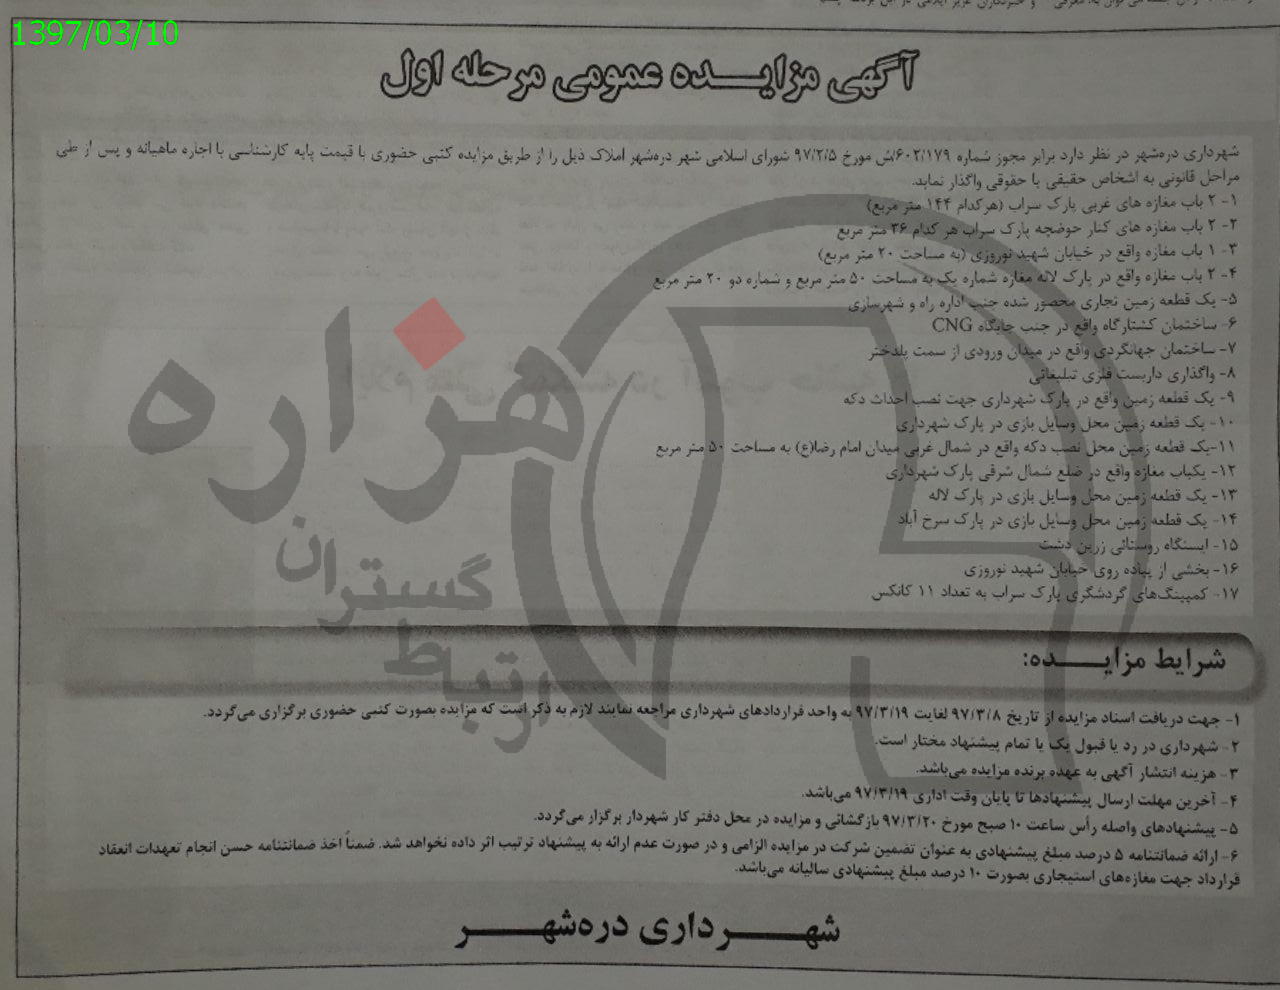 1397/03/10
آگهی مزایـــده عمومی مرحله اول
شهرداری دره‌شهر در نظر دارد برابر مجوز شماره ۶۰۲/۱۷۹/ش مورخ ۹۷/۲/۵ شورای اسلامی شهر دره‌شهر املاک ذیل را از طریق مزایده کتبی حضوری با قیمت پایه کارشناسی با اجاره ماهیانه و پس از طی
مراحل قانونی به اشخاص حقیقی یا حقوقی واگذار نماید.
۱- ۲ باب مغازه های غربی پارک سراب (هرکدام ۱۴۴ متر مربع)
۲- ۲ باب مغازه های کنار حوضچه پارک سراب هر کدام ۳۶ متر مربع
۳- ۱ باب مغازه واقع در خیابان شهید نوروزی (به مساحت ۲۰ متر مربع)
۴- ۲ باب مغازه واقع در پارک لاله مغازه شماره یک به مساحت ۵۰ متر مربع و شماره دو ۲۰ متر مربع
۵- یک قطعه زمین تجاری محصور شده جنب اداره راه و شهرسازی
۶- ساختمان کشتارگاه واقع در جنب جایگاه CNG
۷- ساختمان جهانگردی واقع در میدان ورودی از سمت پلدختر
۸- واگذاری داربست فلزی تبلیغاتی
۹- یک قطعه زمین واقع در پارک شهرداری جهت نصب احداث دکه
۱۰- یک قطعه زمین محل وسایل بازی در پارک شهرداری
۱۱-یک قطعه زمین محل نصب دکه واقع در شمال غربی میدان امام رضا(ع) به مساحت ۵۰ متر مربع
۱۲- یکباب مغازه واقع در ضلع شمال شرقی پارک شهرداری
۱۳- یک قطعه زمین محل وسایل بازی در پارک لاله
۱۴- یک قطعه زمین محل وسایل بازی در پارک سرخ آباد
۱۵- ایستگاه روستائی زرین دشت
۱۶- بخشی از پیاده روی خیابان شهید نوروزی
۱۷- کمپینگ‌های گردشگری پارک سراب به تعداد ۱۱ کانکس
هزاره
گستران
ارتباط
شرایط مزایـــده:
۱- جهت دریافت اسناد مزایده از تاریخ ۹۷/۳/۸ لغایت ۹۷/۳/۱۹ به واحد قراردادهای شهرداری مراجعه نمایند لازم به ذکر است که مزایده بصورت کتبی حضوری برگزاری می‌گردد.
۲- شهرداری در رد یا قبول یک یا تمام پیشنهاد مختار است.
۳- هزینه انتشار آگهی به عهده برنده مزایده می‌باشد.
۴- آخرین مهلت ارسال پیشنهادها تا پایان وقت اداری ۹۷/۳/۱۹ می‌باشد.
۵- پیشنهادهای واصله رأس ساعت ۱۰ صبح مورخ ۹۷/۳/۲۰ بازگشائی و مزایده در محل دفتر کار شهردار برگزار می‌گردد.
۶- ارائه ضمانتنامه ۵ درصد مبلغ پیشنهادی به عنوان تضمین شرکت در مزایده الزامی و در صورت عدم ارائه به پیشنهاد ترتیب اثر داده نخواهد شد. ضمناً اخذ ضمانتنامه حسن انجام تعهدات انعقاد
قرارداد جهت مغازه‌های استیجاری بصورت ۱۰ درصد مبلغ پیشنهادی سالیانه می‌باشد.
شهـــرداری دره‌شهـــر